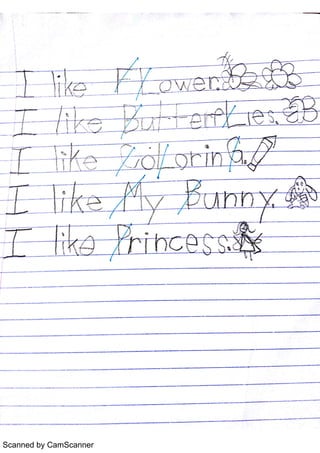 I like FLower.
I like ButterfLies.
I like CoLorinG.
I like My Bunny.
I like Princess.
Scanned by CamScanner